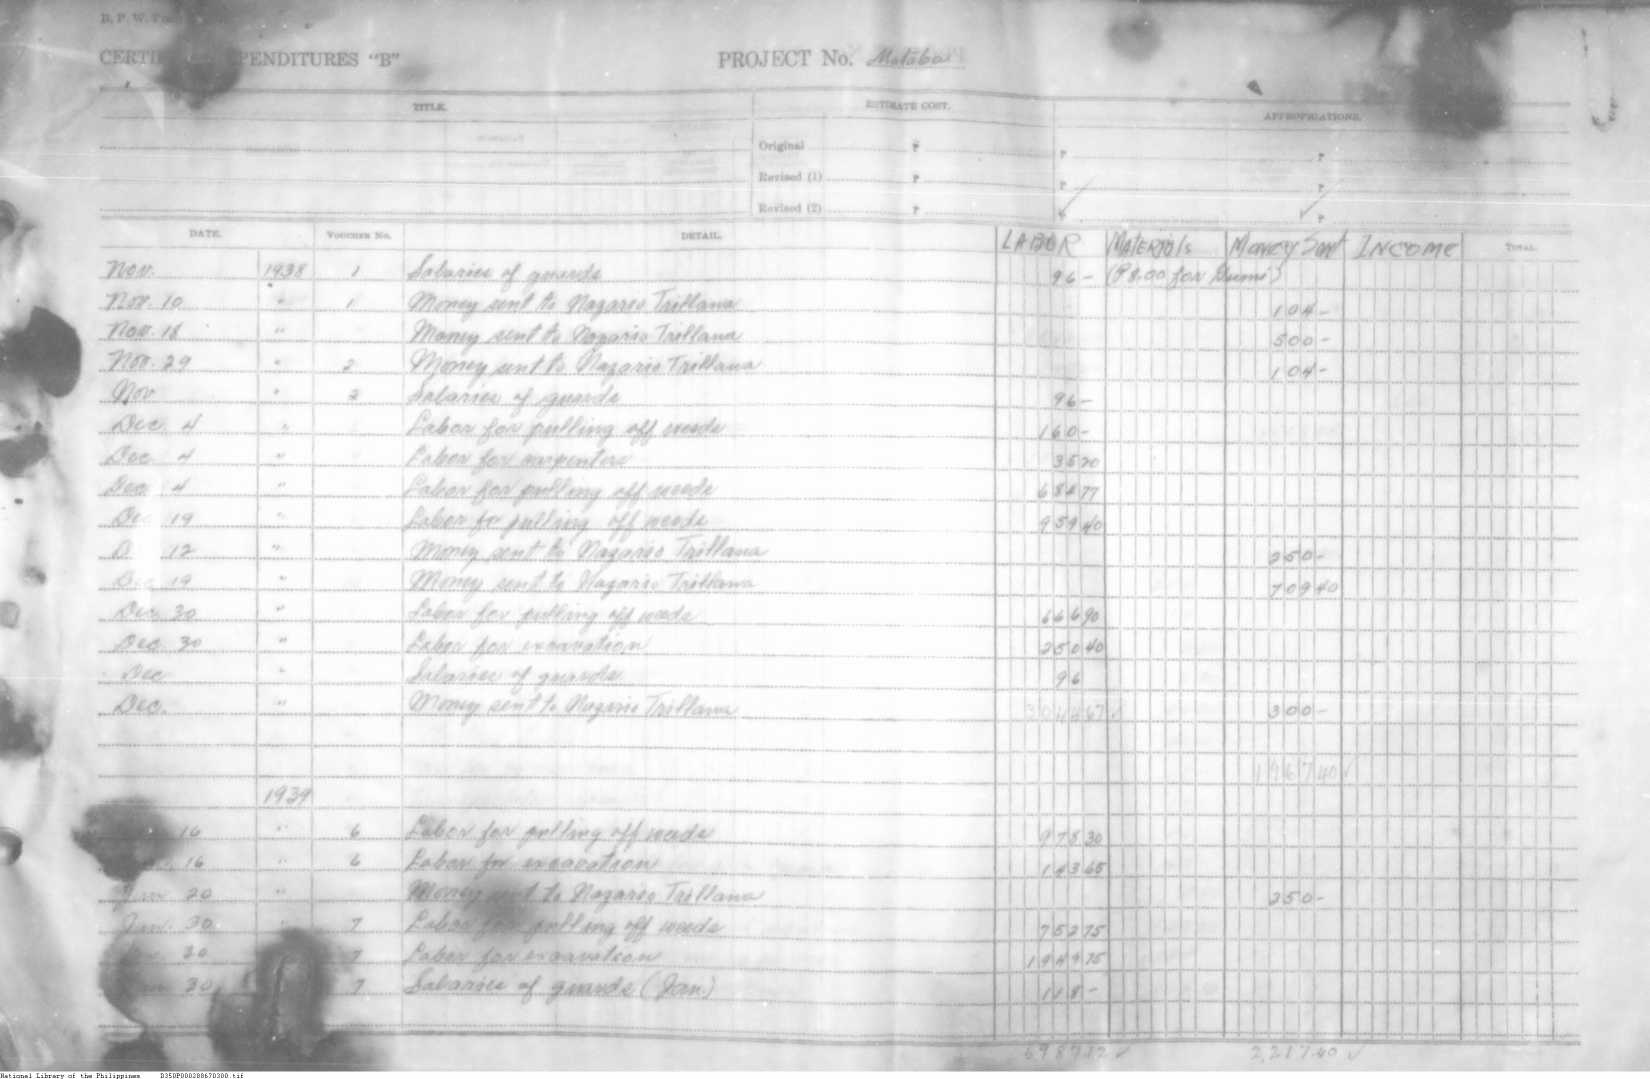 B. P. W.
CERTI PENDITURES "B" PROJECT No. Mataba
TITLE. ESTIMATE COST. APPROPRIATIONS.
Original ₱ ₱ ₱
Revised (1) ₱ ₱ ₱
Revised (2) ₱ ₱ ₱
DATE. VOUCHER No. DETAIL. LABOR Materials Money Sent INCOME TOTAL.
Nov. 1938 1 Salaries of guards 96 - (₱8.00 for Dumi)
Nov. 10 " 1 Money sent to Nazario Trillana 104 -
Nov. 18 " Money sent to Nazario Trillana 500 -
Nov. 29 " 2 Money sent to Nazario Trillana 104 -
Nov " 2 Salaries of guards 96 -
Dec. 4 " Labor for pulling off weeds 160 -
Dec. 4 " Labor for carpenters 35 20
Dec. 4 " Labor for pulling off weeds 684 77
Dec 19 " Labor for pulling off weeds 959 40
D 12 " Money sent to Nazario Trillana 250 -
Dec 19 " Money sent to Nazario Trillana 709 40
Dec. 30 " Labor for pulling off weeds 666 90
Dec. 30 " Labor for excavation 250 40
Dec " Salaries of guards 96
Dec. " Money sent to Nazario Trillana 3044 67 ✓ 300 -
1967 40 ✓
1939
16 " 6 Labor for pulling off weeds 978 30
16 " 6 Labor for excavation 143 65
Jan. 20 " Money sent to Nazario Trillana 250 -
Jan. 30 " 7 Labor for pulling off weeds 752 75
30 7 Labor for excavation 1949 75
30 7 Salaries of guards (Jan.) 118 -
6987.12 ✓ 2,217.40 ✓
National Library of the Philippines D350P000288670300.tif